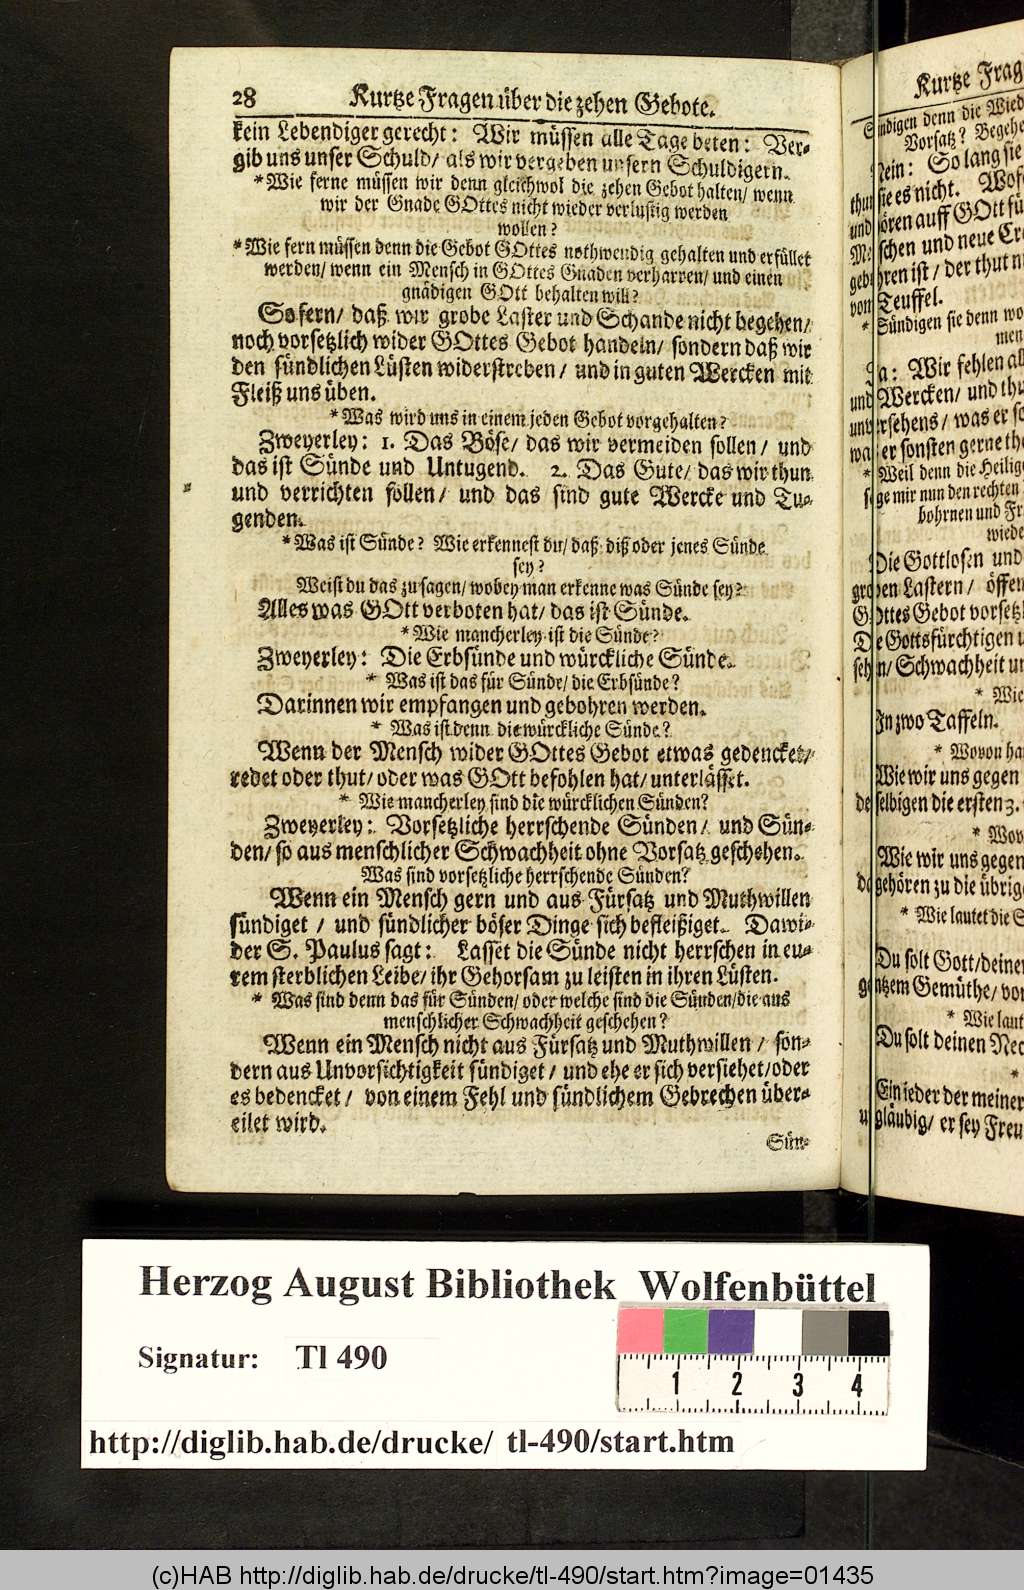 28 Kurtze Fragen über die zehen Gebote.
kein Lebendiger gerecht: Wir müssen alle Tage beten: Ver-
gib uns unser Schuld/ als wir vergeben unsern Schuldigern.
*Wie ferne müssen wir denn gleichwol die zehen Gebot halten/ wenn
wir der Gnade GOttes nicht wieder verlustig werden
wollen?
*Wie fern müssen denn die Gebot GOttes nothwendig gehalten und erfüllet
werden/ wenn ein Mensch in GOttes Gnaden verharren/ und einen
gnädigen GOtt behalten will?
Sofern/ daß wir grobe Laster und Schande nicht begehen/
noch vorsetzlich wider GOttes Gebot handeln/ sondern daß wir
den sündlichen Lüsten widerstreben/ und in guten Wercken mit
Fleiß uns üben.
*Was wird uns in einem jeden Gebot vorgehalten?
Zweyerley: 1. Das Böse/ das wir vermeiden sollen/ und
das ist Sünde und Untugend. 2. Das Gute/ das wir thun
und verrichten sollen/ und das sind gute Wercke und Tu-
genden.
*Was ist Sünde? Wie erkennest du/ daß diß oder jenes Sünde
sey?
Weist du das zu sagen/ wobey man erkenne was Sünde sey?
Alles was GOtt verboten hat/ das ist Sünde.
* Wie mancherley ist die Sünde?
Zweyerley: Die Erbsünde und würckliche Sünde.
* Was ist das für Sünde/ die Erbsünde?
Darinnen wir empfangen und gebohren werden.
* Was ist denn die würckliche Sünde?
Wenn der Mensch wider GOttes Gebot etwas gedencket/
redet oder thut/ oder was GOtt befohlen hat/ unterlässet.
* Wie mancherley sind die würcklichen Sünden?
Zweyerley: Vorsetzliche herrschende Sünden/ und Sün-
den/ so aus menschlicher Schwachheit ohne Vorsatz geschehen.
Was sind vorsetzliche herrschende Sünden?
Wenn ein Mensch gern und aus Fürsatz und Muthwillen
sündiget/ und sündlicher böser Dinge sich befleißiget. Dawi-
der S. Paulus sagt: Lasset die Sünde nicht herrschen in eu-
rem sterblichen Leibe/ ihr Gehorsam zu leisten in ihren Lüsten.
* Was sind denn das für Sünden/ oder welche sind die Sünden/ die aus
menschlicher Schwachheit geschehen?
Wenn ein Mensch nicht aus Fürsatz und Muthwillen/ son-
dern aus Unvorsichtigkeit sündiget/ und ehe er sich versiehet/ oder
es bedencket/ von einem Fehl und sündlichem Gebrechen über-
eilet wird.
Sün-
Kurtze Frag
denn die Wied
Vorsatz? Begehe
Nein: So lang sie
sie es nicht.
hören auff GOtt
schen und neue
ist/ der thut
Teuffel.
* Sündigen sie denn
Ja: Wir fehlen
Wercken/ und
was er
er sonsten gerne
* Weil denn die Heilige
mir nun den rechten
bohrnen und
wiede
Die Gottlosen und
Lastern/ öffen
GOttes Gebot vorsetzl
Die Gottsfürchtigen
Schwachheit
* Wie
In zwo Taffeln.
* Wovon
Wie wir uns gegen
selbigen die ersten 3.
* Wov
Wie wir uns gegen
gehören zu die übrige
* Wie lautet die
Du solt Gott/ deinen
Gemüthe/
* Wie laut
Du solt deinen Nec
*
Ein ieder der meiner
gläubig/ er sey Freu
Herzog August Bibliothek Wolfenbüttel
Signatur: Tl 490
1 2 3 4
http://diglib.hab.de/drucke/ tl-490/start.htm
(c)HAB http://diglib.hab.de/drucke/tl-490/start.htm?image=01435